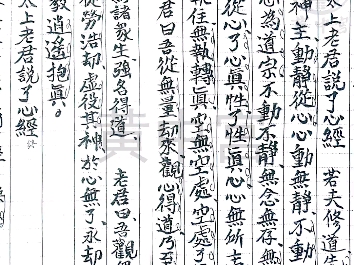 太上老君說了心經 若夫修道
神主、動靜從心心動無靜、不動
心為道宗不動不靜、無念無存、無
從心了心真性了性真心心無所去
執住無執轉真空無空處空處了
君曰吾從無量劫來觀心得道乃至
諸眾生強名得道、老君曰吾觀
從勞浩劫、虛役其神於心無了、永劫
教逍遙抱真。
太上老君說了心經